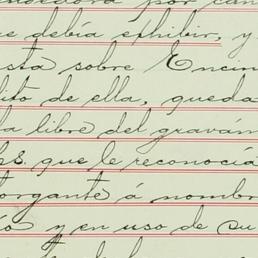 por can
se debía exhibir, y
sta sobre Encin
dito de ella, queda
a libre del graváme
hs que le reconocía
torgante á nombr
o y en uso de su